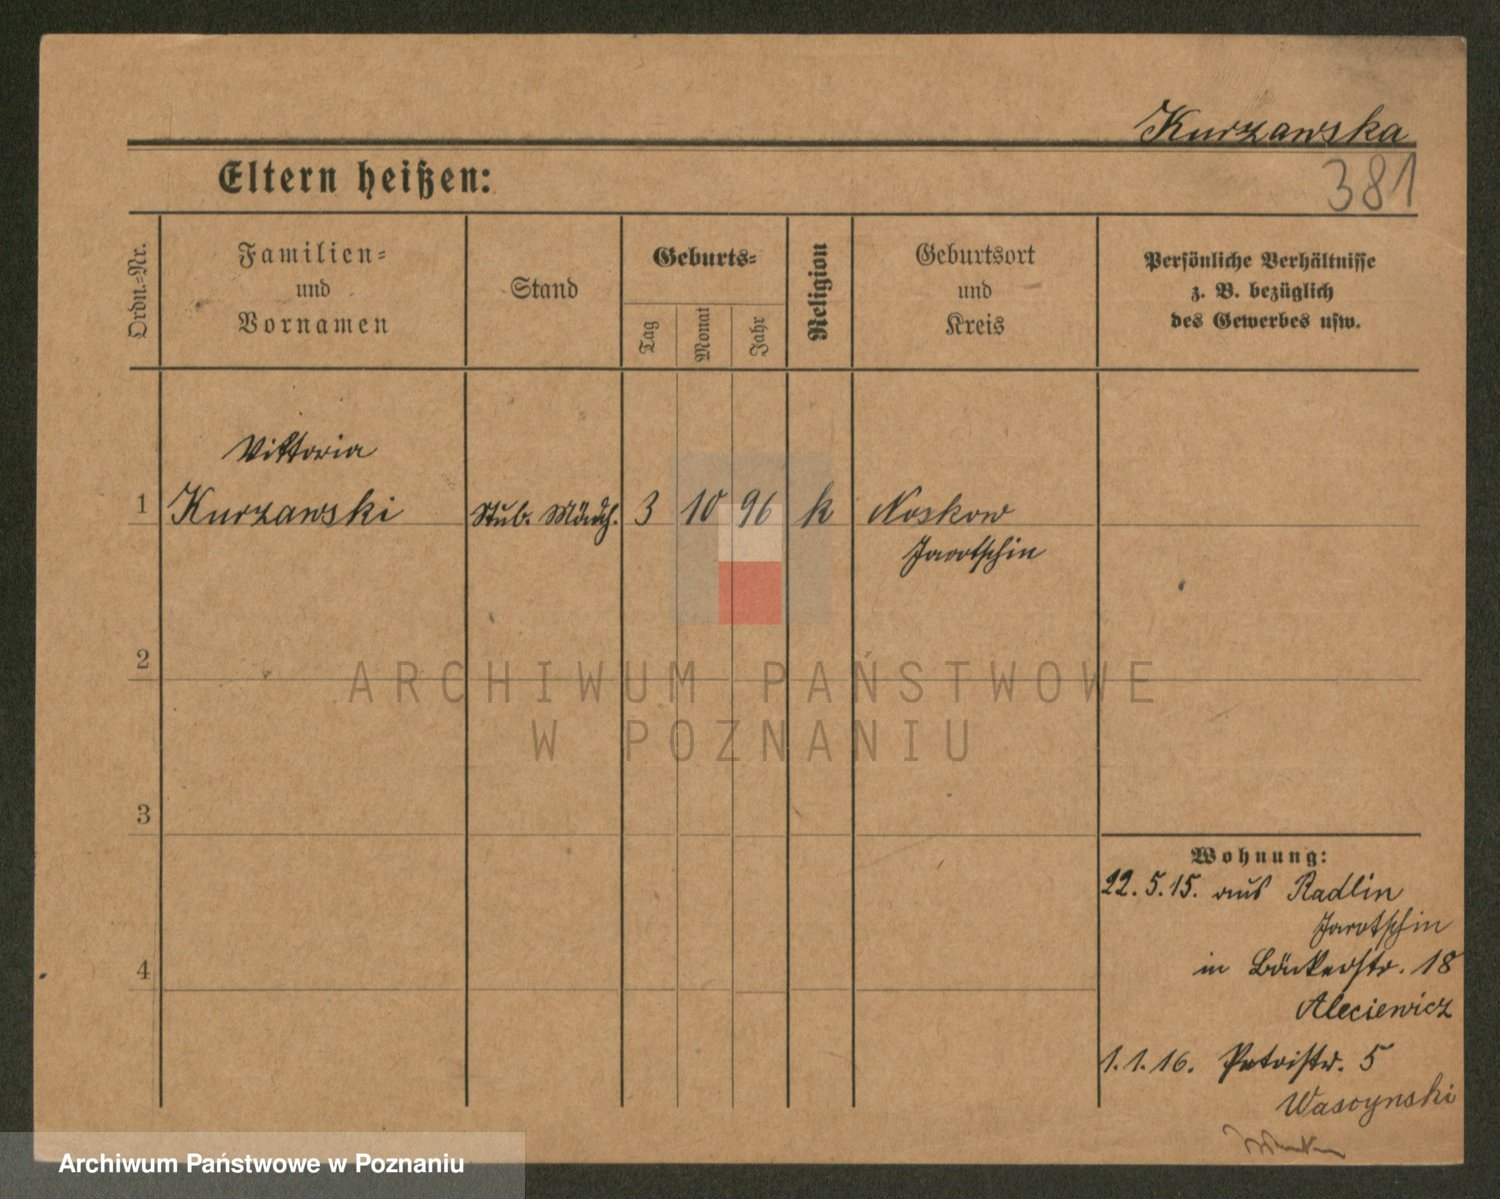 Kurzawska
381
Eltern heißen:
Ordn.-Nr.
Familien-
und
Vornamen
Stand
Geburts-
Tag
Monat
Jahr
Religion
Geburtsort
und
Kreis
Persönliche Verhältnisse
z. B. bezüglich
des Gewerbes usw.
Viktoria
1 Kurzawski Stub. Mädch. 3 10 96 k Noskow
Jarotschin
2
ARCHIWUM PAŃSTWOWE
W POZNANIU
3
Wohnung:
22.5.15. aus Radlin
Jarotschin
4
in Bäckerstr. 18
Aleciewicz
1.1.16. Petristr. 5
Archiwum Państwowe w Poznaniu